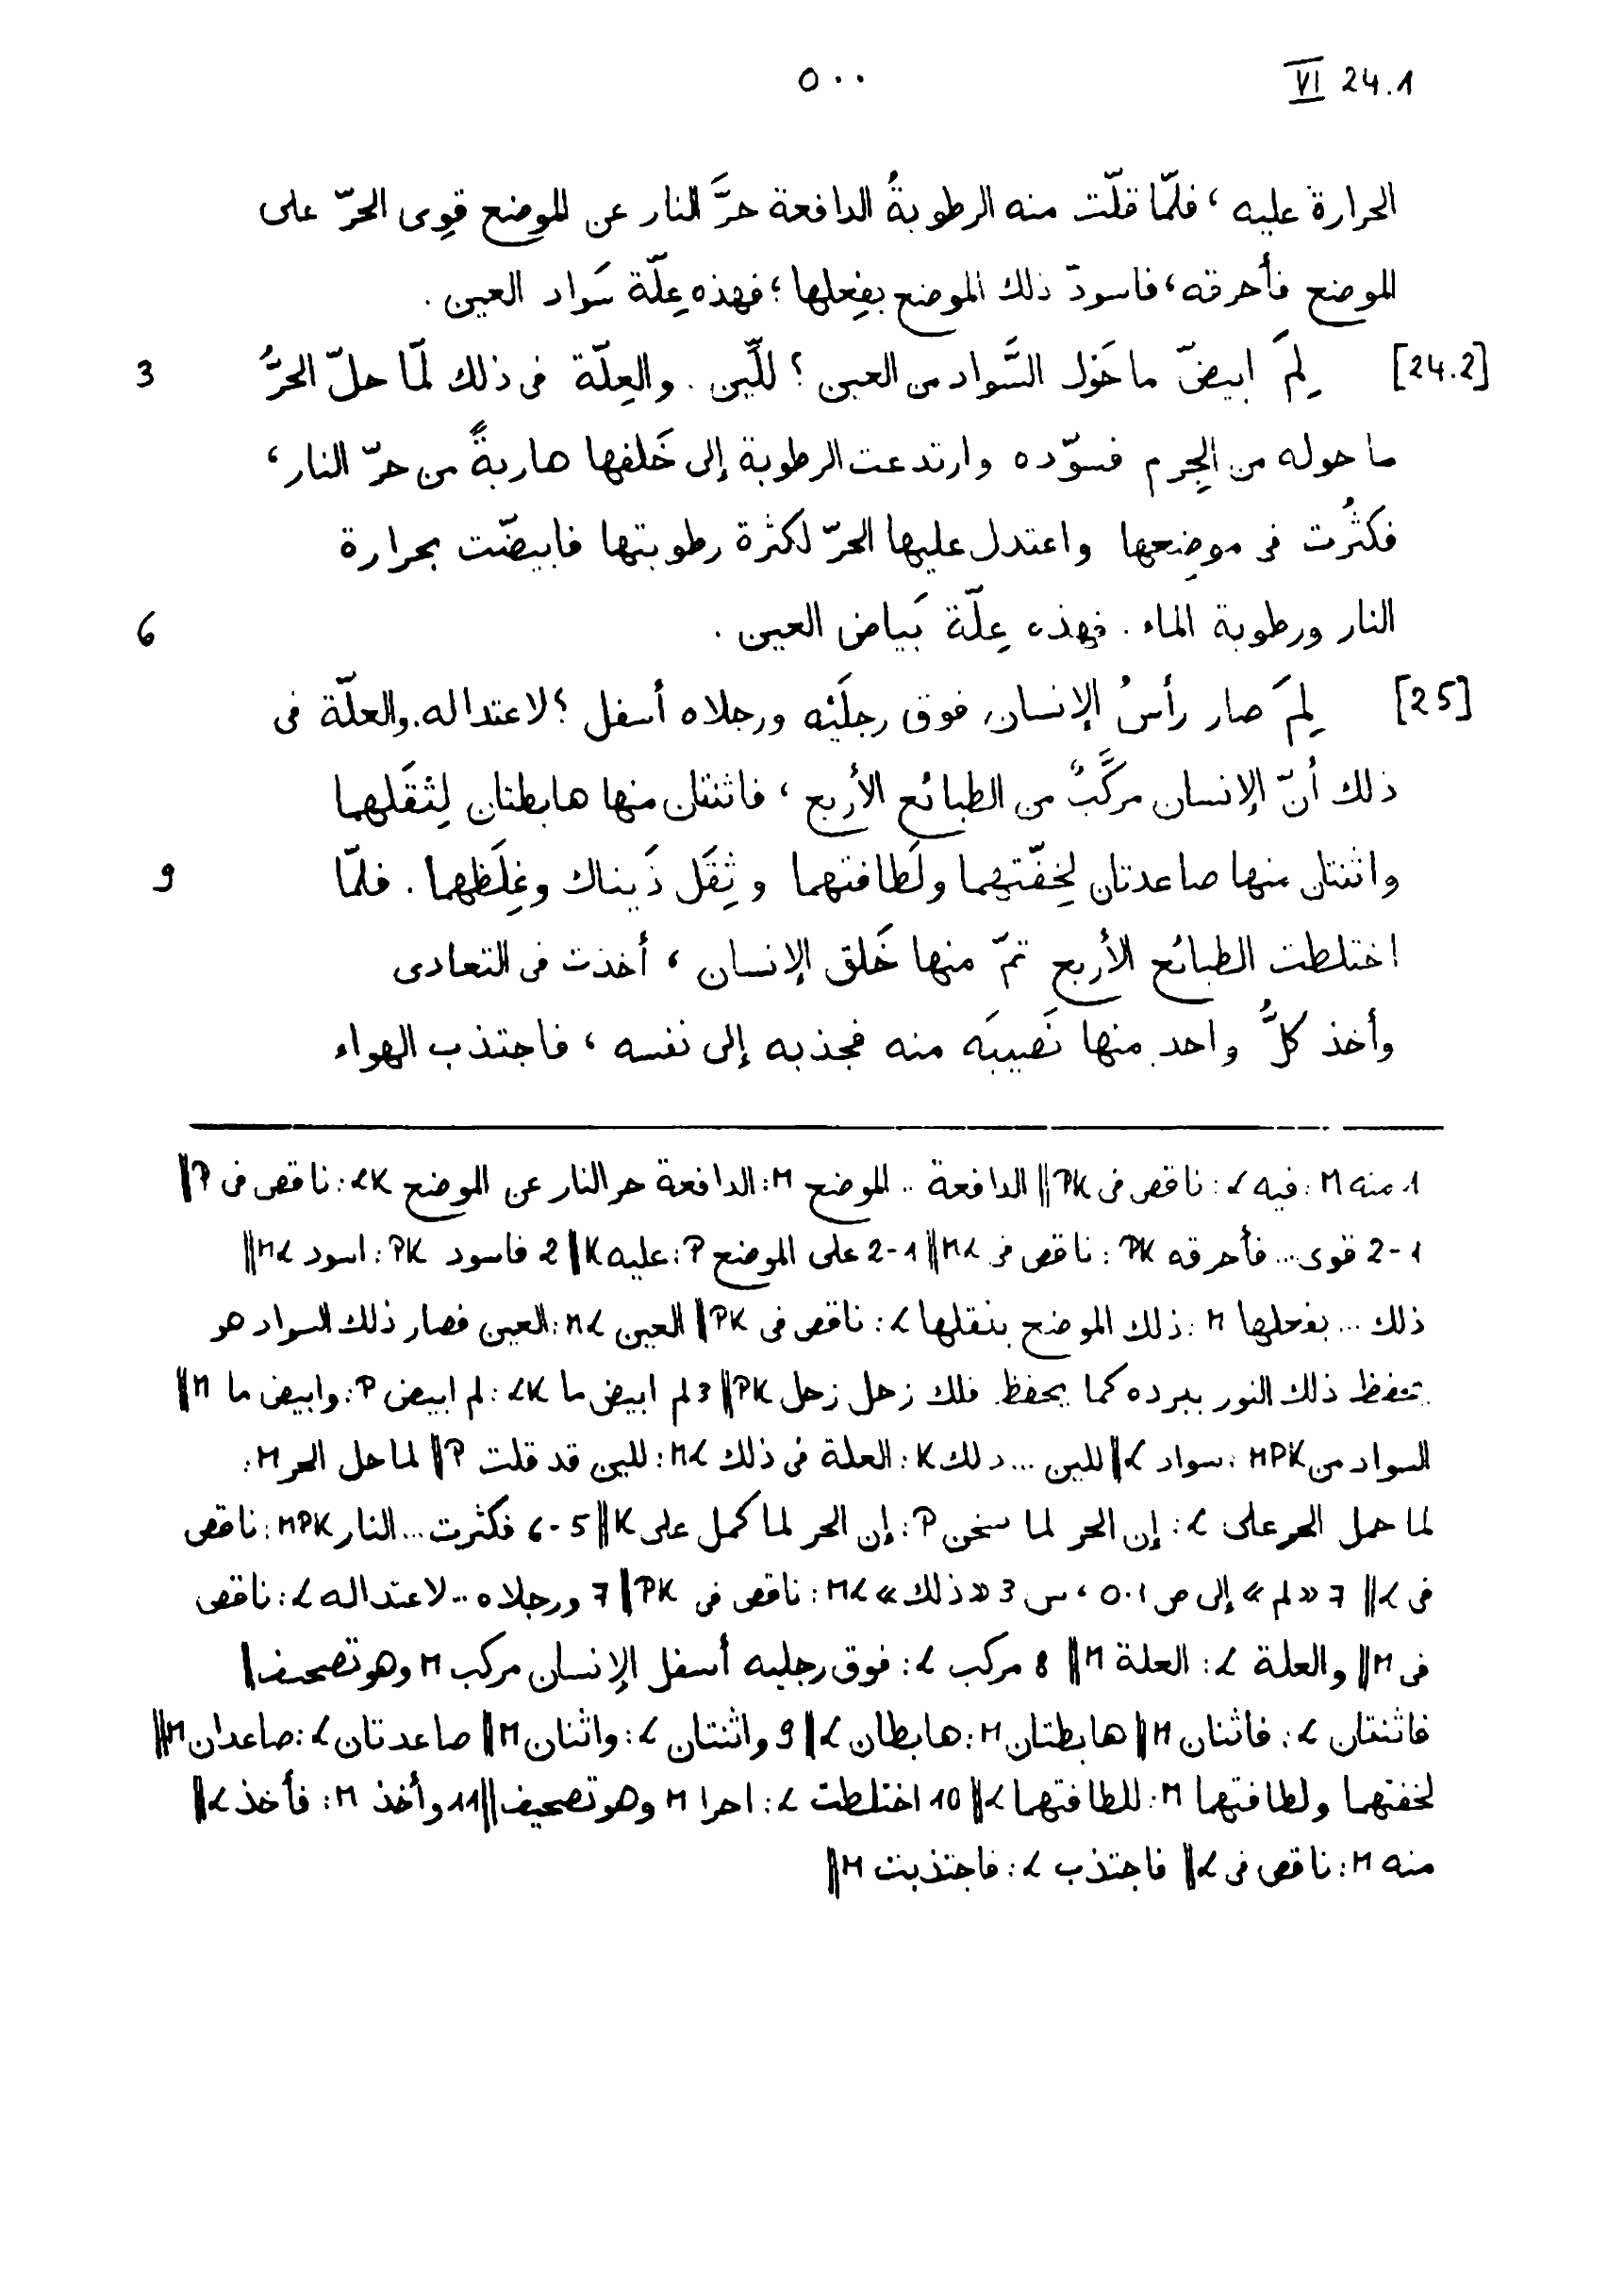 VI 24.1 ٥٠٠
الحرارة عليه ، فلمّا قلّت منه الرطوبةُ الدافعة حرَّ النار عن الموضع قوِى الحرّ على
الموضع فأحرقه ، فاسودّ ذلك الموضع بفِعلها ؛ فهذه عِلّة سَواد العين .
[24.2] لِمَ ابيضّ ما حَول السَّواد من العين ؟ للِّين . والعِلّة فى ذلك لَمّا حلّ الحرُّ 3
ما حوله من الجِرم فسوّده وارتدعت الرطوبة إلى خَلفها هاربةً من حرّ النار ،
فكثُرت فى موضِعها واعتدل عليها الحرّ لكثرة رطوبتها فابيضّت بحرارة
النار ورطوبة الماء . فهذه عِلّة بَياض العين . 6
[25] لِمَ صار رأسُ الإنسان فوق رجلَيْه ورجلاه أسفل ؟ لاعتداله . والعلّة فى
ذلك أنّ الإنسان مركَّبٌ من الطبائع الأربع ، فاثنتان منها هابطتان لِثقَلهما
واثنتان منها صاعدتان لِخفّتهما ولَطافتهما وثِقَل ذَيناك وغِلَظهما . فلمّا 9
اختلطت الطبائع الأربع تمّ منها خَلق الإنسان ، أخذت فى التعادى
وأخذ كلُّ واحد منها نَصيبَه منه فجذبه إلى نفسه ، فاجتذب الهواء
1 منه M : فيه L : ناقص فى PK || الدافعة .. الموضع M : الدافعة حر النار عن الموضع LK : ناقص فى P ||
1-2 قوى ... فأحرقه PK : ناقص فى ML || 1-2 على الموضع P : عليه K || 2 فاسود PK : اسود ML ||
ذلك ... بفعلها M : ذلك الموضع بنقلها L : ناقص فى PK || العين ML : العين فصار ذلك السواد هو
تحفظ ذلك النور ببرده كما يحفظ فلك زحل زحل PK || 3 لم ابيض ما LK : لم ابيض P : وابيض ما M ||
السواد من MPK : سواد L || للين ... دلك K : العلة فى ذلك ML : للين قد قلت P || لما حل الحر M :
لما حمل الحر على L : إن الحر لما سخن P : إن الحر لما كمل على K || 5-6 فكثرت ... النار MPK : ناقص
فى L || 7 «لم» إلى ص ٥٠١ ، س 3 «ذلك» ML : ناقص فى PK || 7 ورجلاه .. لاعتداله L : ناقص
فى M || والعلة L : العلة M || 8 مركب L : فوق رجليه أسفل الإنسان مركب M وهو تصحيف ||
فاثنتان L : فاثنان M || هابطتان M : هابطان L || 9 واثنتان L : واثنان M || صاعدتان L : صاعدان M ||
لخفتهما ولطافتهما M : للطافتهما L || 10 اختلطت L : احرا M وهو تصحيف || 11 وأخذ M : فأخذ L ||
منه M : ناقص فى L || فاجتذب L : فاجتذبت M ||